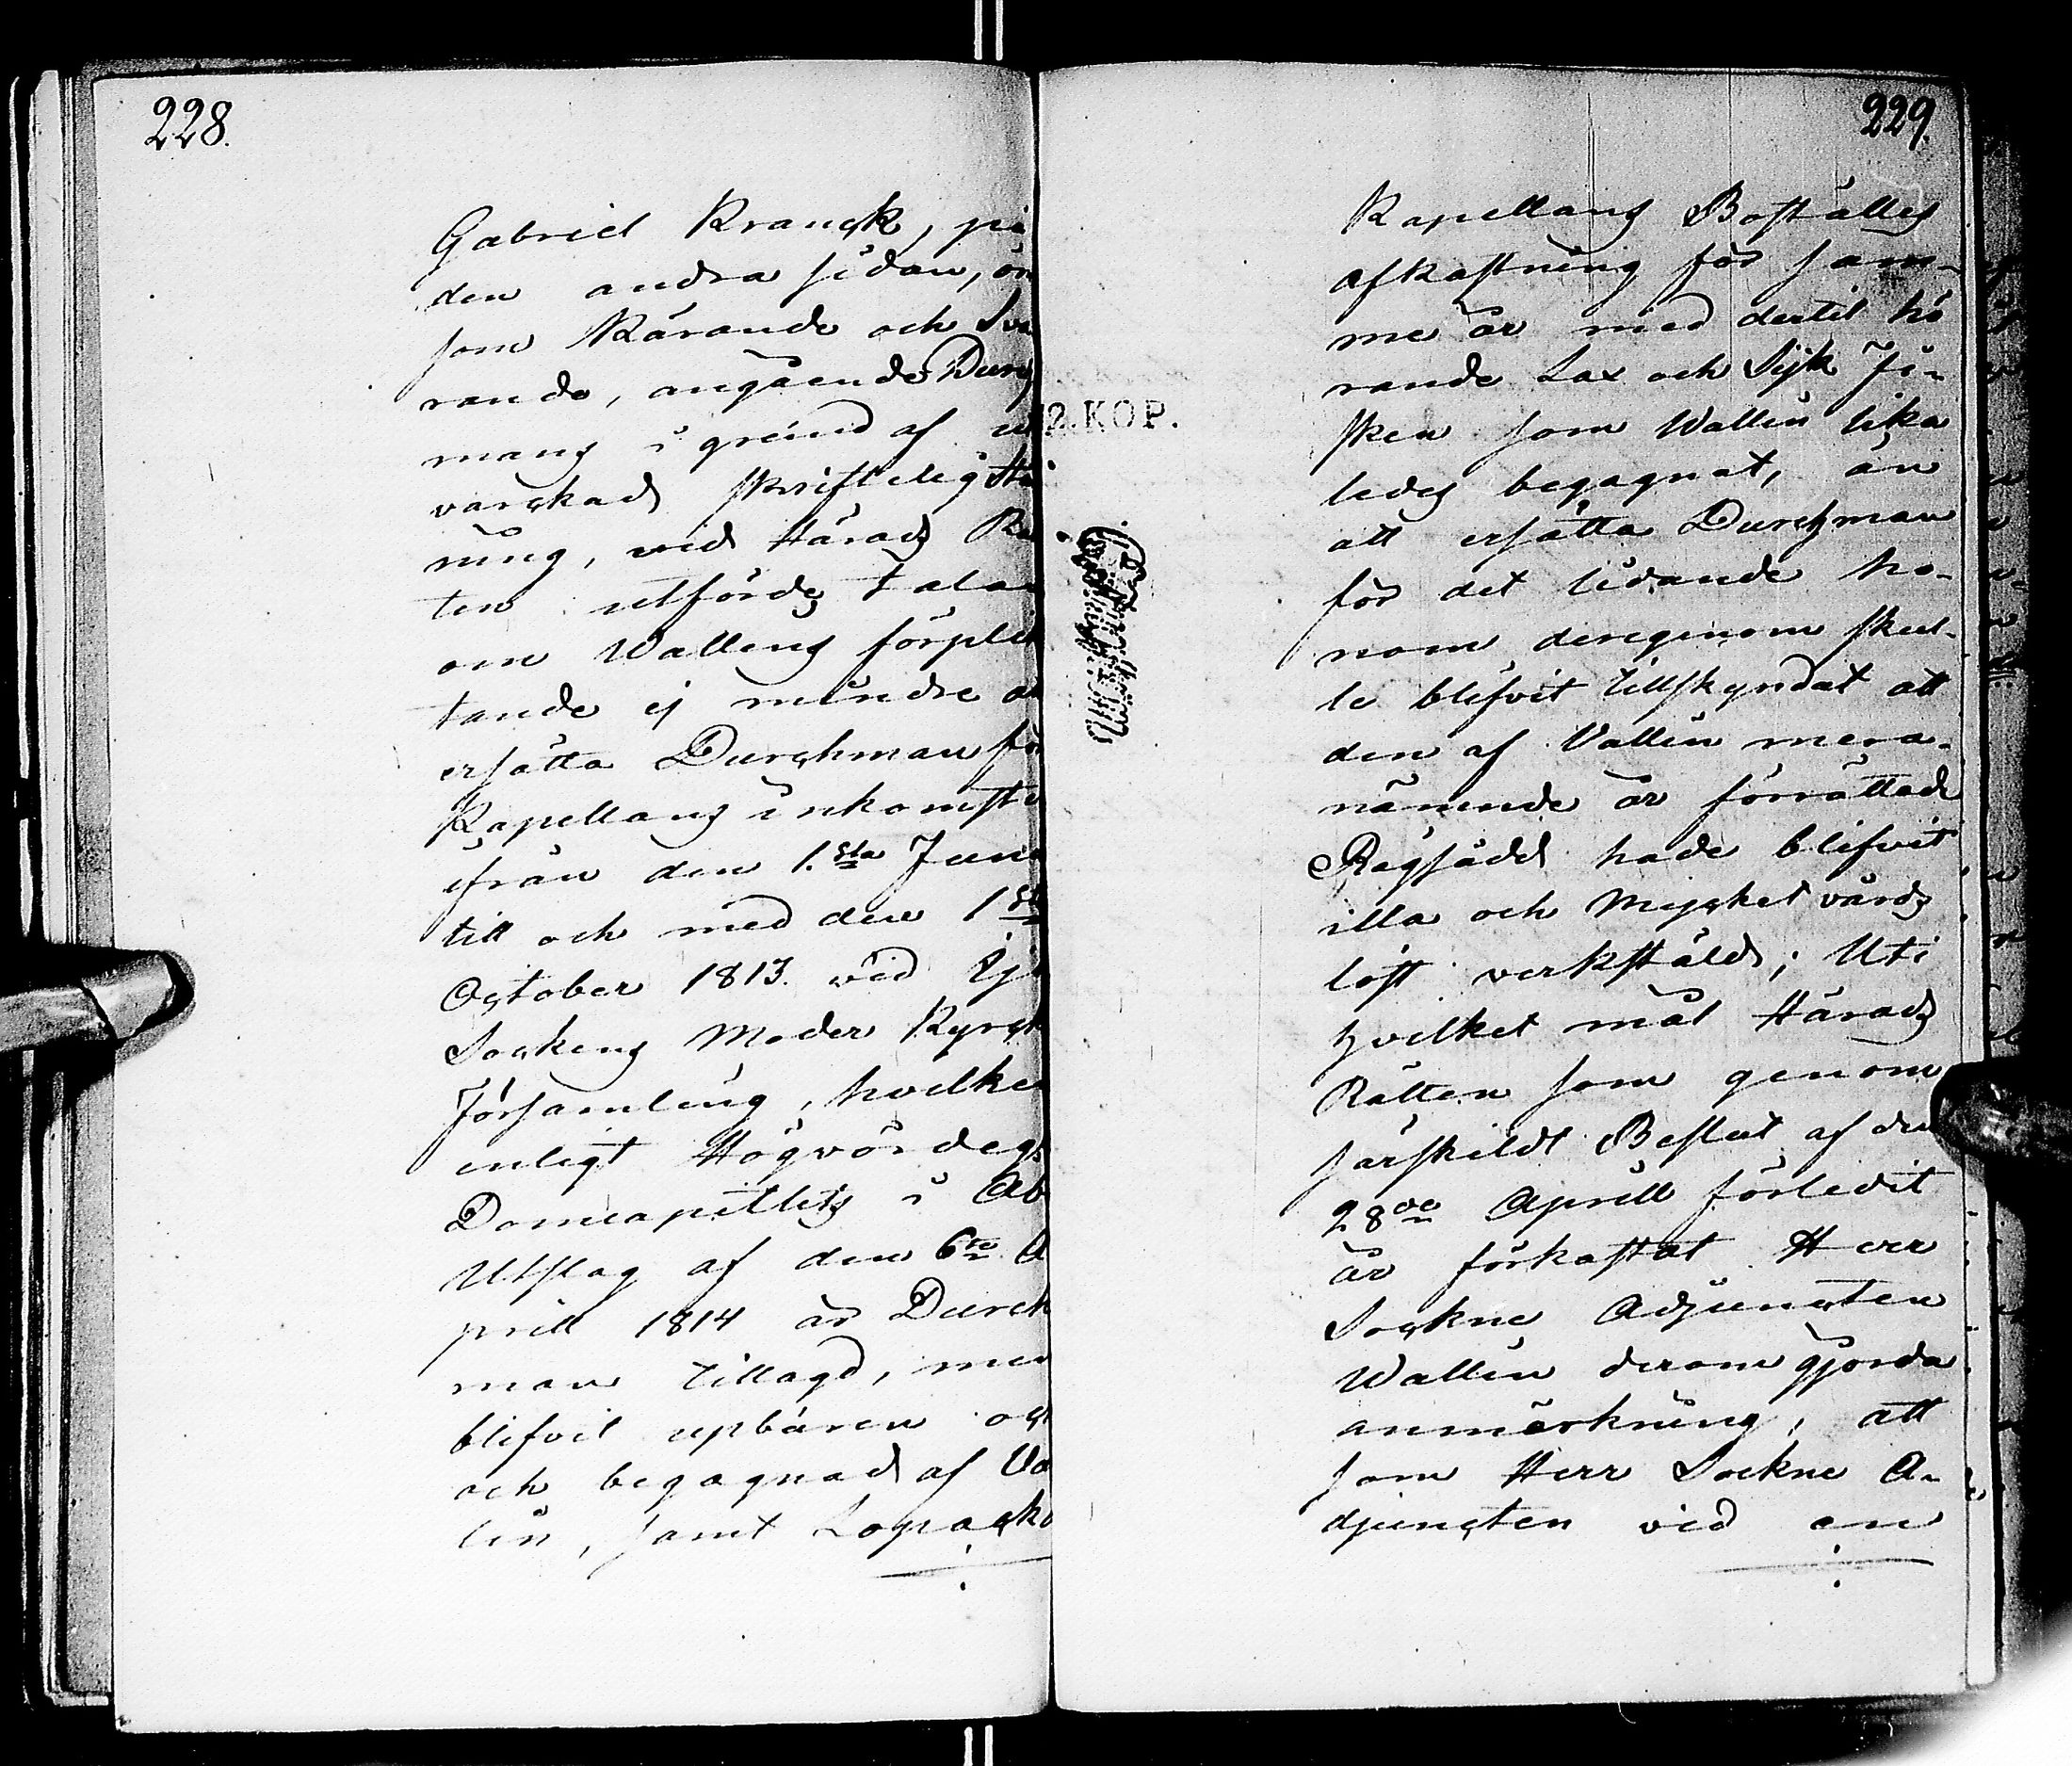 228.
Gabriel Kranck, på
den andra sidan, öm
som Kärande och Sva
rande, angående Durch
mans i grund af ut
värckad skriftelig Stä
ning, vid Härads Rä
ten utförde talan
om Wallens förplik
tande ej mindre än
ersätta Durchman för
Kapellans inkomste
ifrån den 1.sta Juni
till och med den 1sta
October 1813. vid Ijo
Sockens Moder Kyrck
Församling, hvilken
enligt Högvördigs
Domcapitlets i Åb
Utslag af den 6te A
prill 1814 är Durch
man tillagd, men
blifvit upbären ock
och begagnad af Va
lin, samt Lopacko
2.KOP.
229.
Kapellans Boställes
afkastning för sam-
me år med dertil hö
rande Lax och Sijk Fi-
sken som Wallin lika
ledes begagnat, än
att ersätta Durchman
för det lidande ho-
nom derigenom skul-
le blifvit tillskyndat att
den af Vallin mera-
nämnde år förrättade
Rågsådd hade blifvit
illa och mycket vårds
löst verkstäld; Uti
hvilket mål Härads
Rätten som genom
särskildt Beslut af den
28de Aprill förledit
år förkastat Herr
Sockne Adjuncten
Wallin derom gjorda
anmärkning, att
som Herr Sockne A-
djuncten vid en